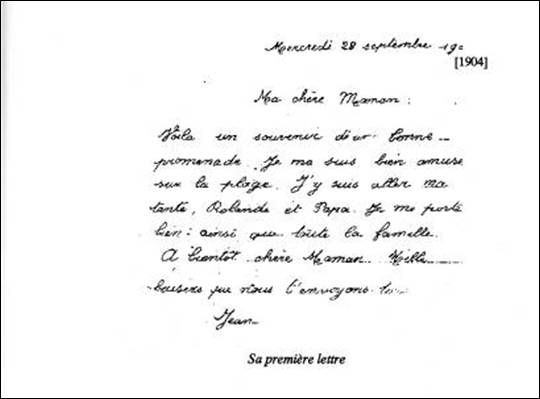 Mercredi 28 septembre 19
[1904]
Ma chère Maman :
Voila un souvenir d'une bonne
promenade. Je me suis bien amuse
sur la plage. J'y suis aller ma
tante, Rolande et Papa. Je me porte
bien : ainsi que toute la famelle.
A bientot chère Maman. Mille
baisers que nous t'envoyons
Jean
Sa première lettre